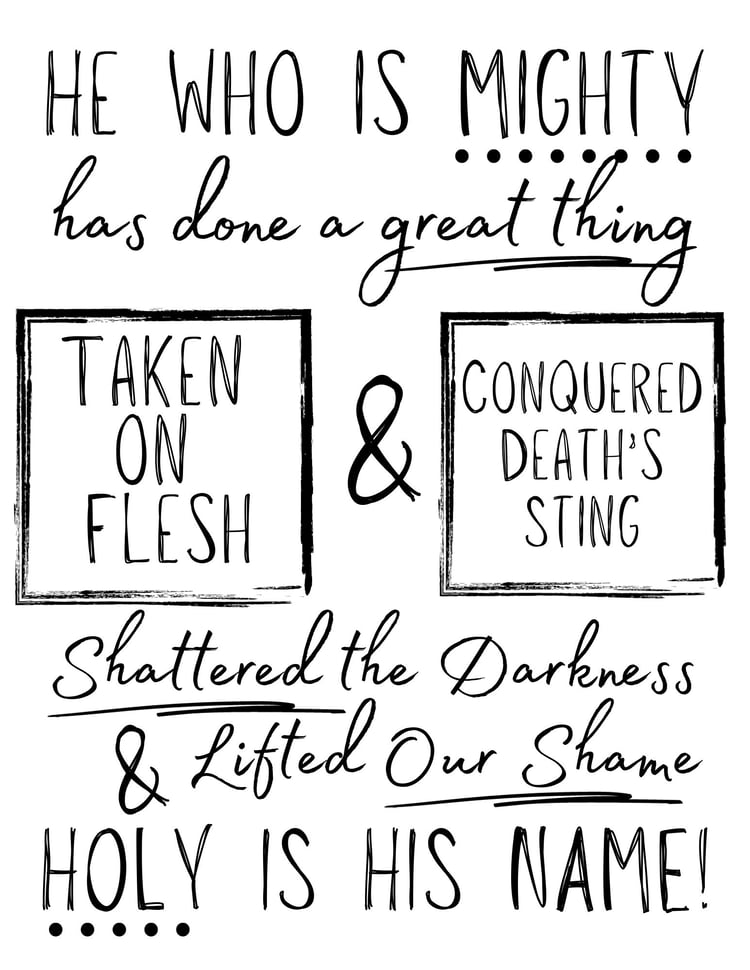 HE WHO IS MIGHTY
has done a great thing
TAKEN
ON
FLESH
&
CONQUERED
DEATH'S
STING
Shattered the Darkness
& Lifted Our Shame
HOLY IS HIS NAME!